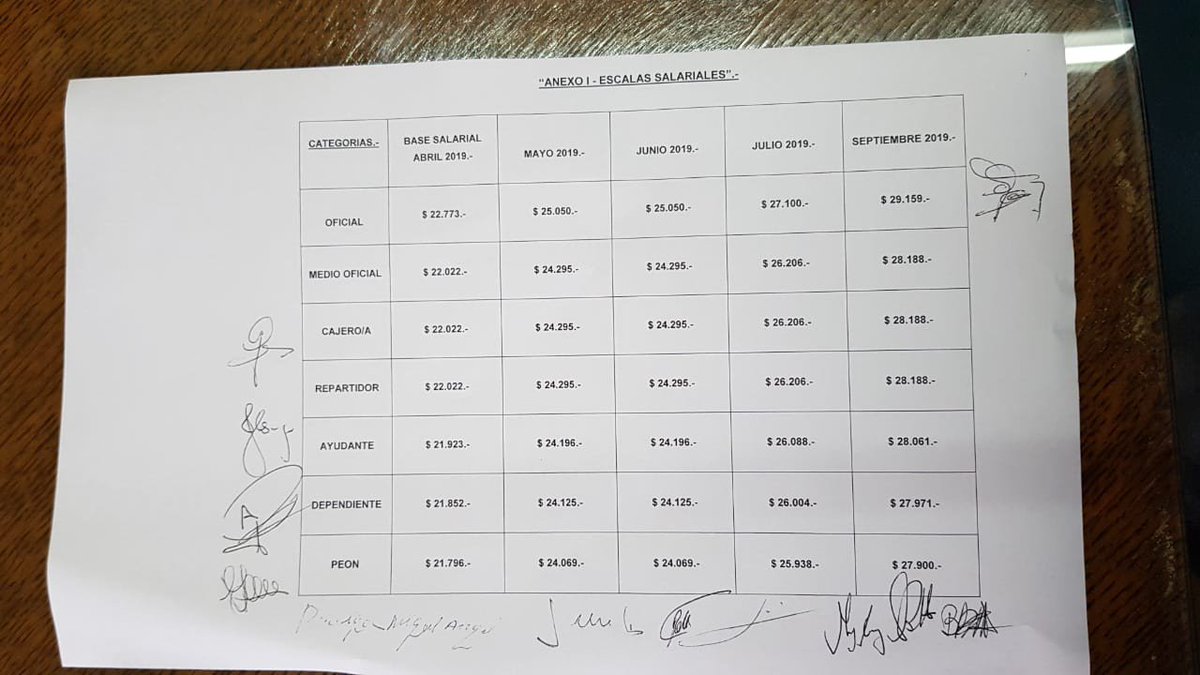 "ANEXO I - ESCALAS SALARIALES".-
CATEGORIAS.- BASE SALARIAL ABRIL 2019.- MAYO 2019.- JUNIO 2019.- JULIO 2019.- SEPTIEMBRE 2019.-
OFICIAL $ 22.773.- $ 25.050.- $ 25.050.- $ 27.100.- $ 29.159.-
MEDIO OFICIAL $ 22.022.- $ 24.295.- $ 24.295.- $ 26.206.- $ 28.188.-
CAJERO/A $ 22.022.- $ 24.295.- $ 24.295.- $ 26.206.- $ 28.188.-
REPARTIDOR $ 22.022.- $ 24.295.- $ 24.295.- $ 26.206.- $ 28.188.-
AYUDANTE $ 21.923.- $ 24.196.- $ 24.196.- $ 26.088.- $ 28.061.-
DEPENDIENTE $ 21.852.- $ 24.125.- $ 24.125.- $ 26.004.- $ 27.971.-
PEON $ 21.796.- $ 24.069.- $ 24.069.- $ 25.938.- $ 27.900.-